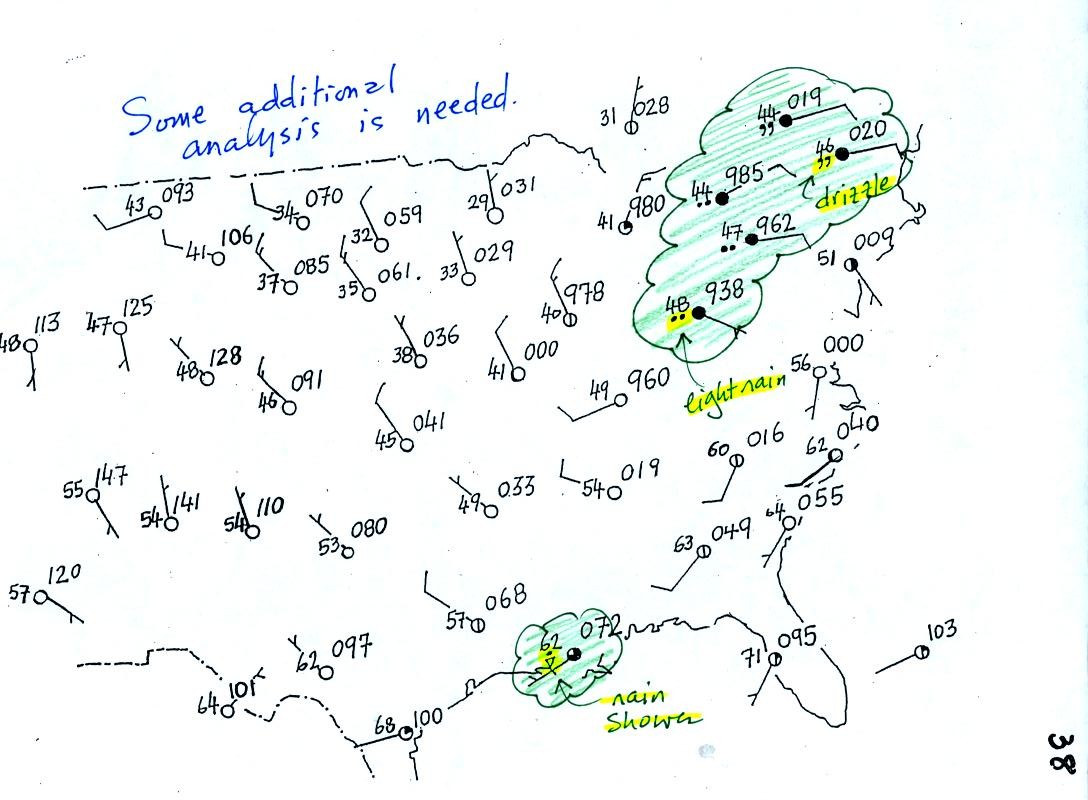 Some additional
analysis is needed.
31 028
44 019
,,
46 020
,,
drizzle
43 093
34 070
059
32
29 031
41 980
44 985
••
47 962
••
41 106
37 085
35 061.
33 029
51 009
40 978
48 938
••
48 113
47 125
48 128
38 036
41 000
56 000
46 091
49 960
light rain
45 041
60 016
62 040
55 147
54 141
54 110
49 033
54 019
64 055
53 080
63 049
57 120
57 068
62 097
62 072
71 095
103
64 101
rain
shower
68 100
38